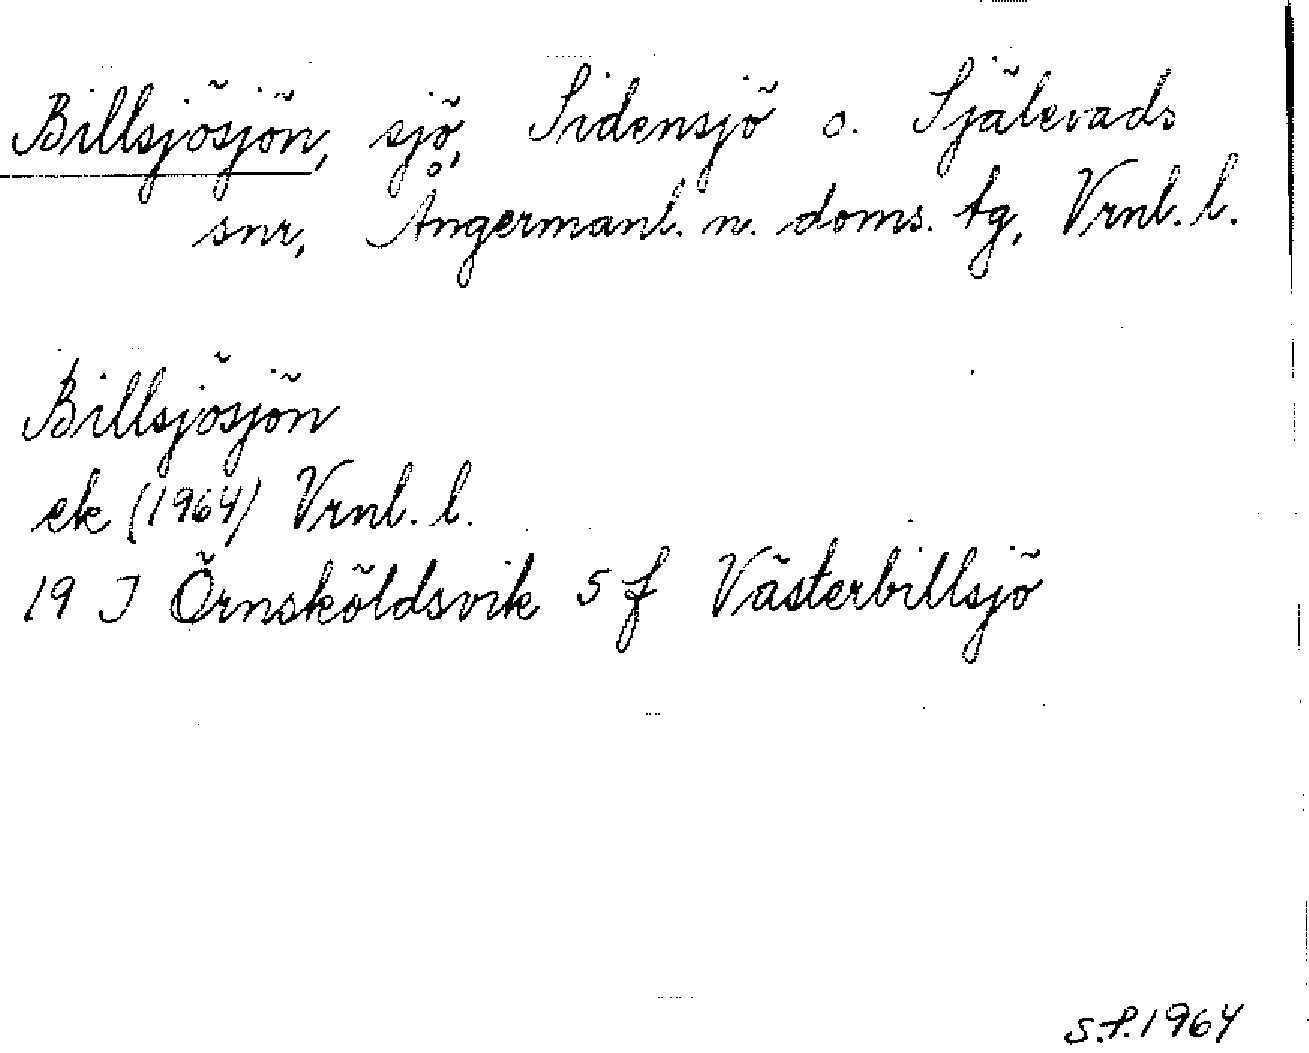 Billsjösjön, sjö, Sidensjö o. Själevads
snr, Ångermanl. n. doms. tg, Vrnl. l.
Billsjösjön
ek (1964) Vrnl. l.
19 J Örnsköldsvik 5 f Västerbillsjö
S.P. 1964